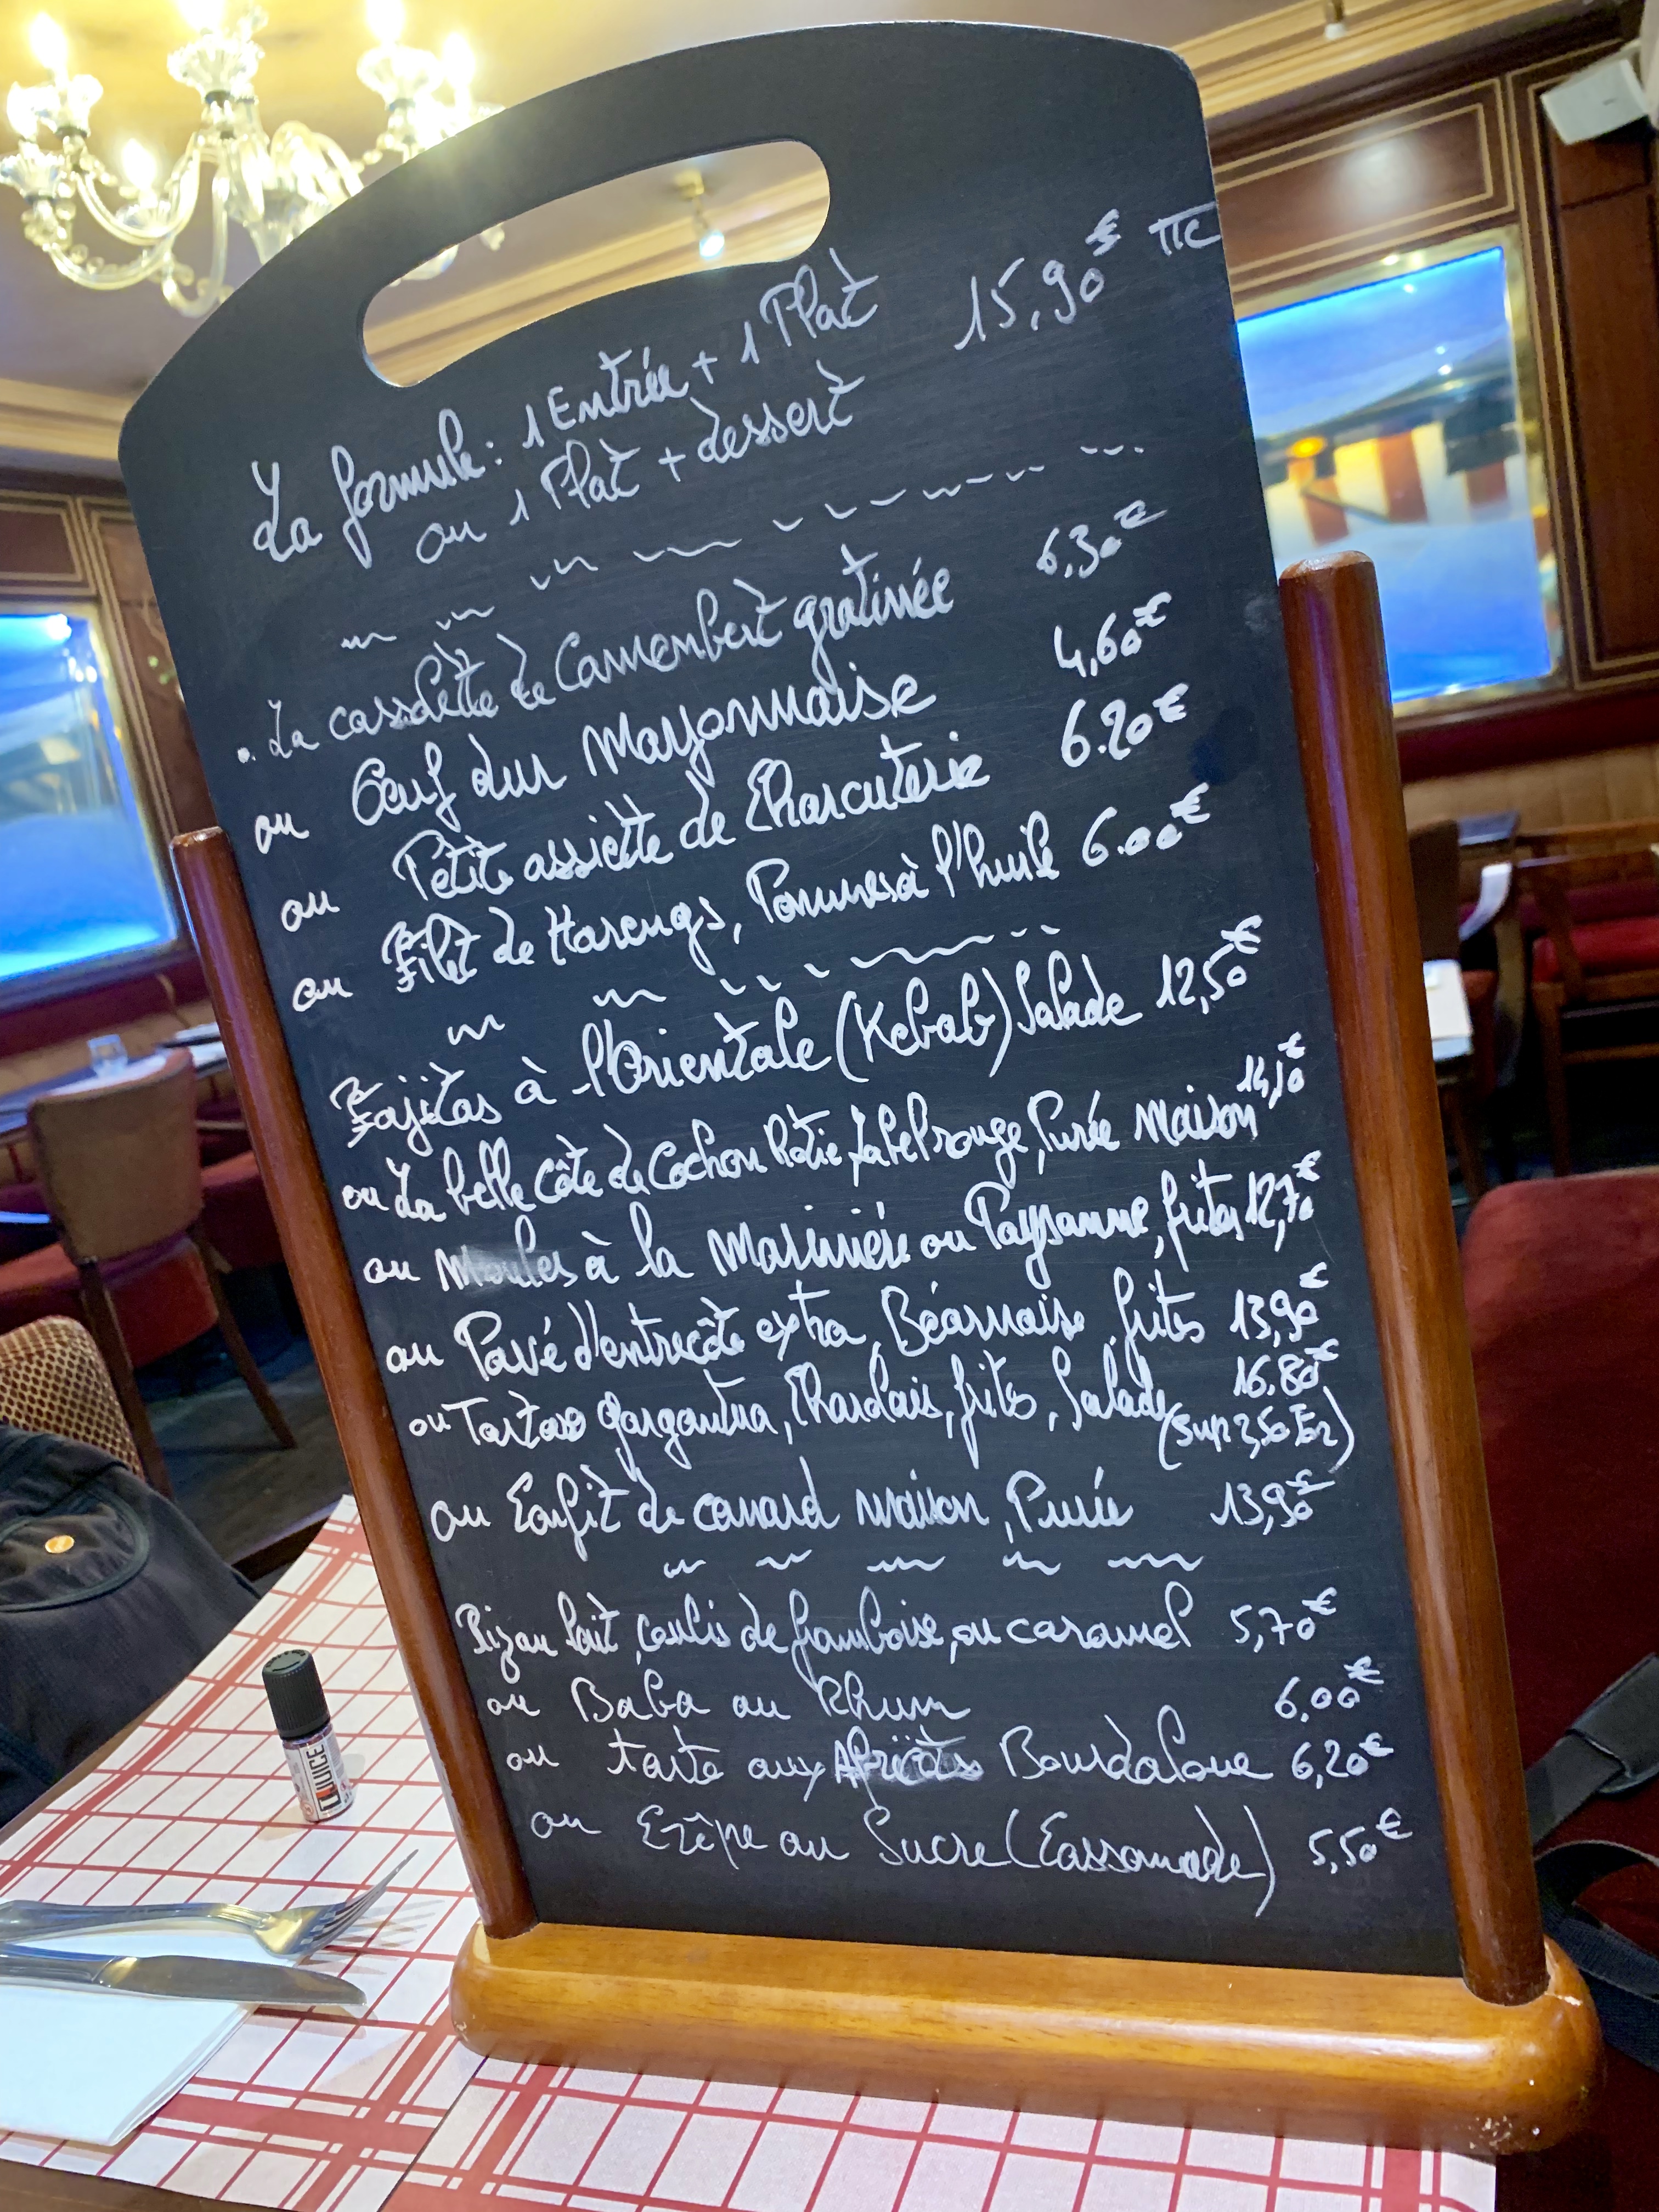 La formule: 1 Entrée + 1 Plat 15,90€ TTC
ou 1 Plat + dessert
. La cassolette de Camembert gratinée 6,30€
ou Oeuf dur Mayonnaise 4,60€
ou Petite assiette de Charcuterie 6.20€
ou Filet de Harengs, Pommes à l'huile 6.00€
Fajitas à l'Orientale (Kebab) Salade 12,50€
ou La belle Côte de Cochon Rôtie, Label rouge, Purée Maison 14,10€
ou Moules à la Marinière ou Paysanne, frites 12,70€
ou Pavé d'entrecôte extra, Béarnaise, frites 13,90€
ou Tartare gargantua, Charolais, frites, Salade 16.80€
(Sup 2,50 En)
ou Confit de canard maison, Purée 13,90€
lait, coulis de framboise, ou caramel 5,70€
ou Baba au Rhum 6,00€
ou tarte aux Abricots Bourdaloue 6,20€
ou Crêpe au Sucre (Cassonade) 5,50€